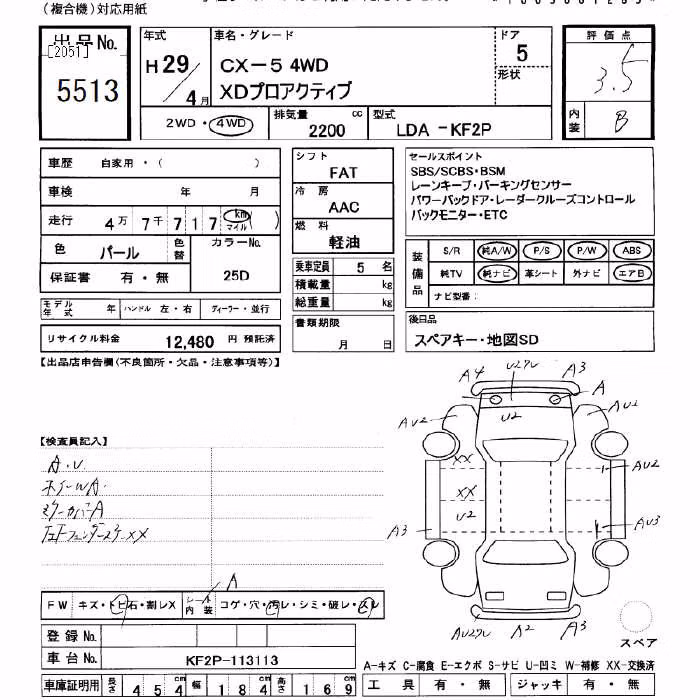 （複合機）対応用紙
出品No. [2051] 5513
年式 H29 / 4月
車名・グレード CX－5 4WD XDプロアクティブ
ドア 5
形状
評価点 3.5
内装 B
2WD・4WD
排気量 2200 cc
型式 LDA －KF2P
車歴 自家用・（ ）
車検 年 月
走行 4万7千717 km マイル ( )
色 パール 色替
カラーNo. 25D
保証書 有・無
シフト FAT
冷房 AAC
燃料 軽油
乗車定員 5 名
積載量 kg
総重量 kg
書類期限 月 日
セールスポイント
SBS/SCBS・BSM
レーンキープ・パーキングセンサー
パワーバックドア・レーダークルーズコントロール
バックモニター・ETC
装備品 S/R 純A/W P/S P/W ABS
純TV 純ナビ 革シート 外ナビ エアB
ナビ型番：
モデル年式 年 ハンドル 左・右 ディーラー・並行
リサイクル料金 12,480 円 預託済
後日品
スペアキー・地図SD
【出品店申告欄(不良箇所・欠品・注意事項等)】
A4 U2ワレ A3
A
AU2 U2 AU2
XX
XX AU2
U2
A3 AU3
AU2ワレ A2 A3
【検査員記入】
A・U
ホイールWA
ミラーカバーA
FW キズ・トビ石・割レX
レール内装 A コゲ・穴・汚レ・シミ・破レ・スレ
登録No.
車台No. KF2P－113113
スペア
A－キズ C－腐食 E－エクボ S－サビ U－凹ミ W－補修 XX－交換済
車庫証明用 長さ 454 cm 幅 184 cm 高さ 169 cm
工具 有・無 ジャッキ 有・無